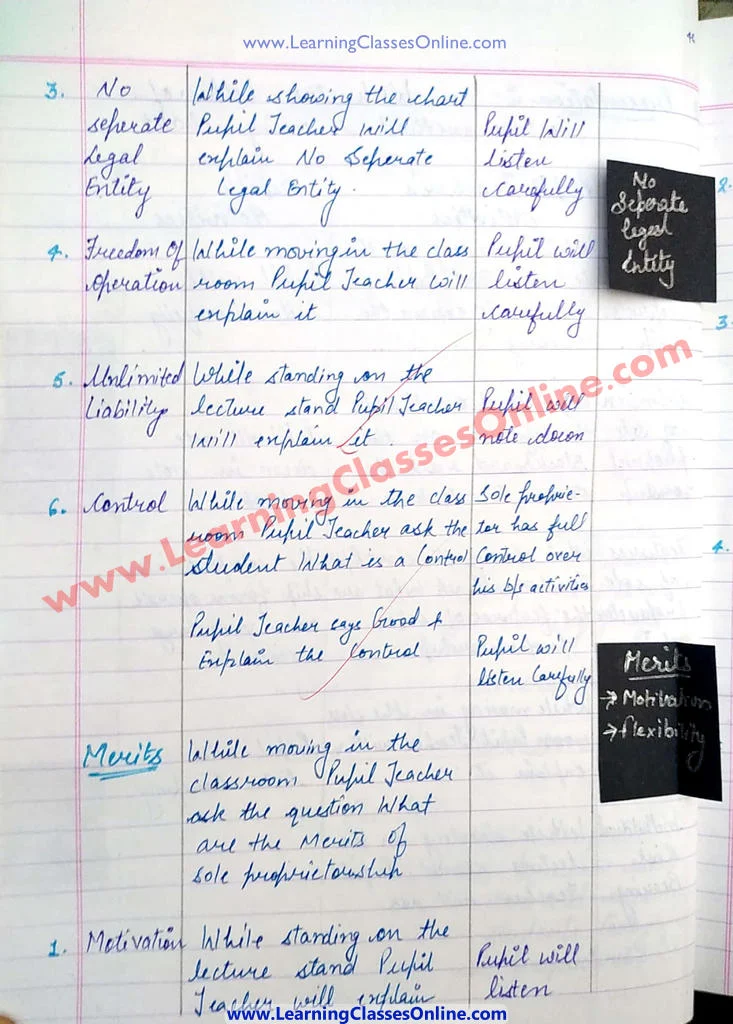 www.LearningClassesOnline.com
3. No While showing the chart
seperate Pupil Teacher will Pupil Will
Legal explain No Seperate listen
Entity Legal Entity. carefully
No
Seperate
legal
Entity
4. Freedom Of While moving in the class Pupil will
operation room Pupil Teacher will listen
explain it carefully
5. Unlimited While standing on the
Liability lecture stand Pupil Teacher Pupil will
Will explain it. note down
6. Control While moving in the class Sole proprie-
room Pupil Teacher ask the tor has full
student What is a Control Control over
his b/s activities
Pupil Teacher says Good &
Explain the Control Pupil will
listen Carefully
Merits
→ Motivation
→ flexibility
Merits While moving in the
classroom Pupil Teacher
ask the question What
are the Merits of
sole proprietorship
1. Motivation While standing on the
lecture stand Pupil Pupil will
Teacher will explain listen
2.
3.
4.
www.LearningClassesOnline.com
www.LearningClassesOnline.com